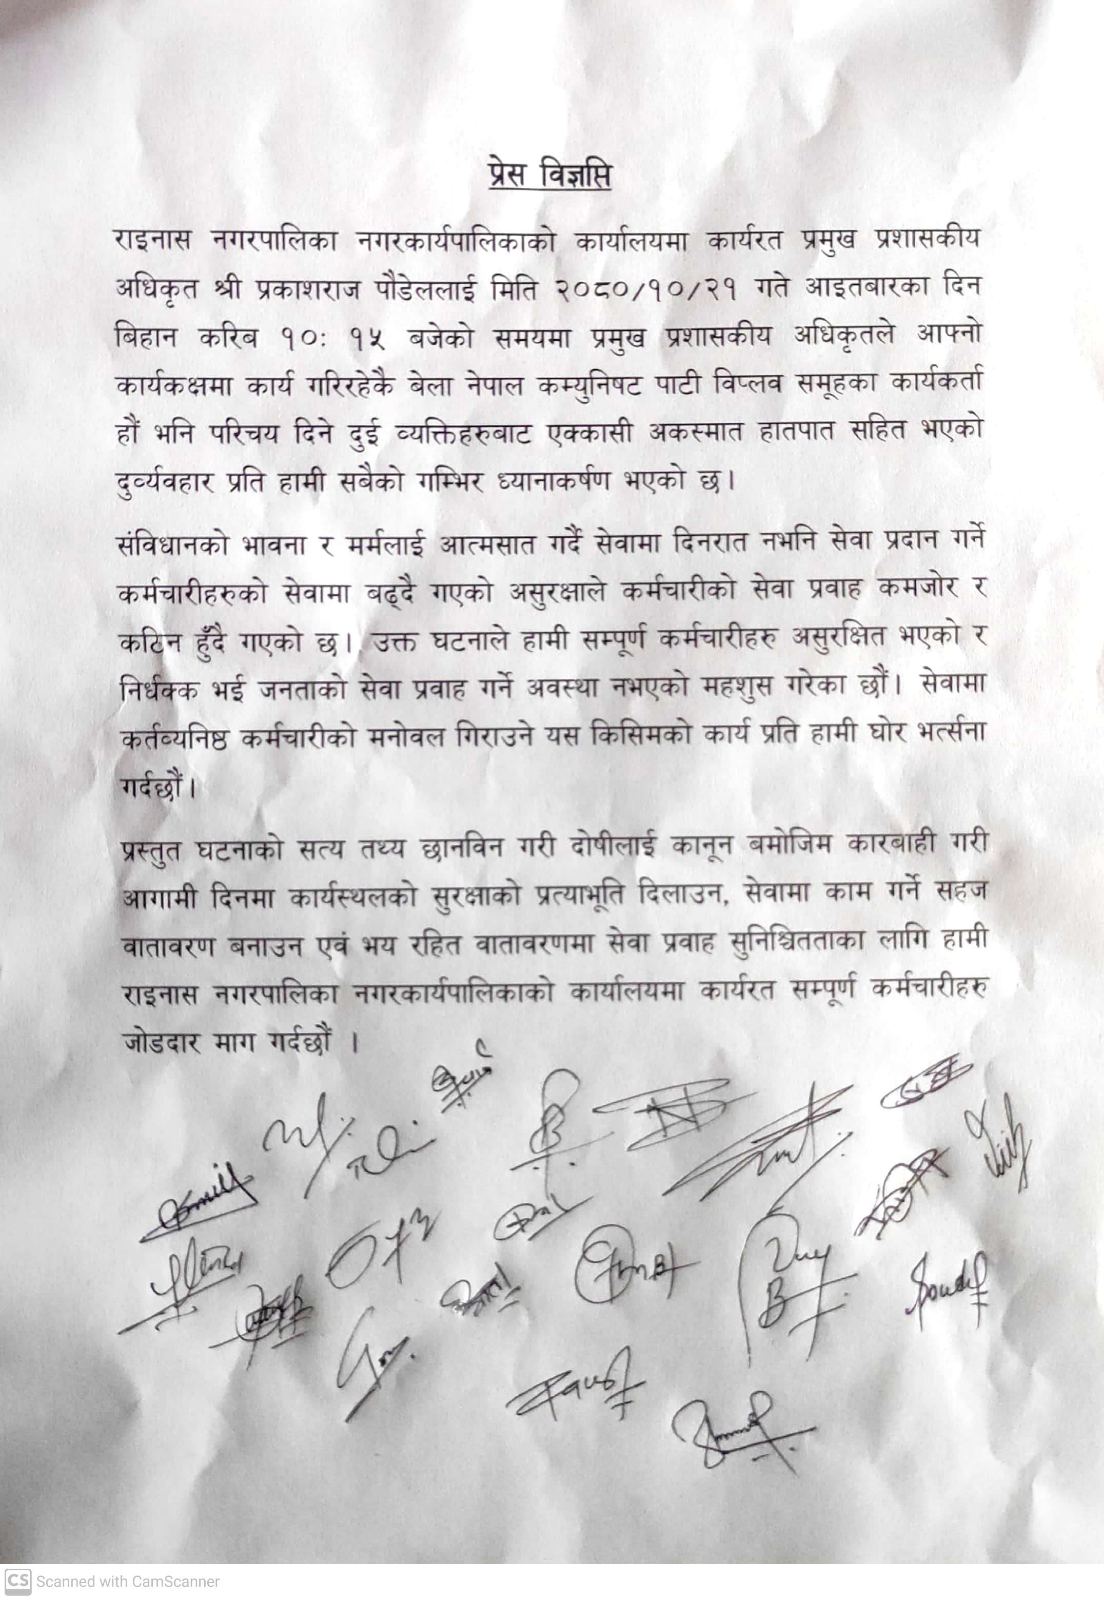 प्रेस विज्ञप्ति
राइनास नगरपालिका नगरकार्यपालिकाको कार्यालयमा कार्यरत प्रमुख प्रशासकीय
अधिकृत श्री प्रकाशराज पौडेललाई मिति २०८०/१०/२१ गते आइतबारका दिन
बिहान करिब १०: १५ बजेको समयमा प्रमुख प्रशासकीय अधिकृतले आफ्नो
कार्यकक्षमा कार्य गरिरहेकै बेला नेपाल कम्युनिषट पाटी विप्लव समूहका कार्यकर्ता
हौं भनि परिचय दिने दुई व्यक्तिहरुबाट एक्कासी अकस्मात हातपात सहित भएको
दुर्व्यवहार प्रति हामी सबैको गम्भिर ध्यानाकर्षण भएको छ।
संविधानको भावना र मर्मलाई आत्मसात गर्दै सेवामा दिनरात नभनि सेवा प्रदान गर्ने
कर्मचारीहरुको सेवामा बढ्दै गएको असुरक्षाले कर्मचारीको सेवा प्रवाह कमजोर र
कठिन हुँदै गएको छ। उक्त घटनाले हामी सम्पूर्ण कर्मचारीहरु असुरक्षित भएको र
निर्धक्क भई जनताको सेवा प्रवाह गर्ने अवस्था नभएको महशुस गरेका छौं। सेवामा
कर्तव्यनिष्ठ कर्मचारीको मनोवल गिराउने यस किसिमको कार्य प्रति हामी घोर भर्त्सना
गर्दछौं।
प्रस्तुत घटनाको सत्य तथ्य छानविन गरी दोषीलाई कानून बमोजिम कारबाही गरी
आगामी दिनमा कार्यस्थलको सुरक्षाको प्रत्याभूति दिलाउन, सेवामा काम गर्ने सहज
वातावरण बनाउन एवं भय रहित वातावरणमा सेवा प्रवाह सुनिश्चितताका लागि हामी
राइनास नगरपालिका नगरकार्यपालिकाको कार्यालयमा कार्यरत सम्पूर्ण कर्मचारीहरु
जोडदार माग गर्दछौं ।
CS Scanned with CamScanner